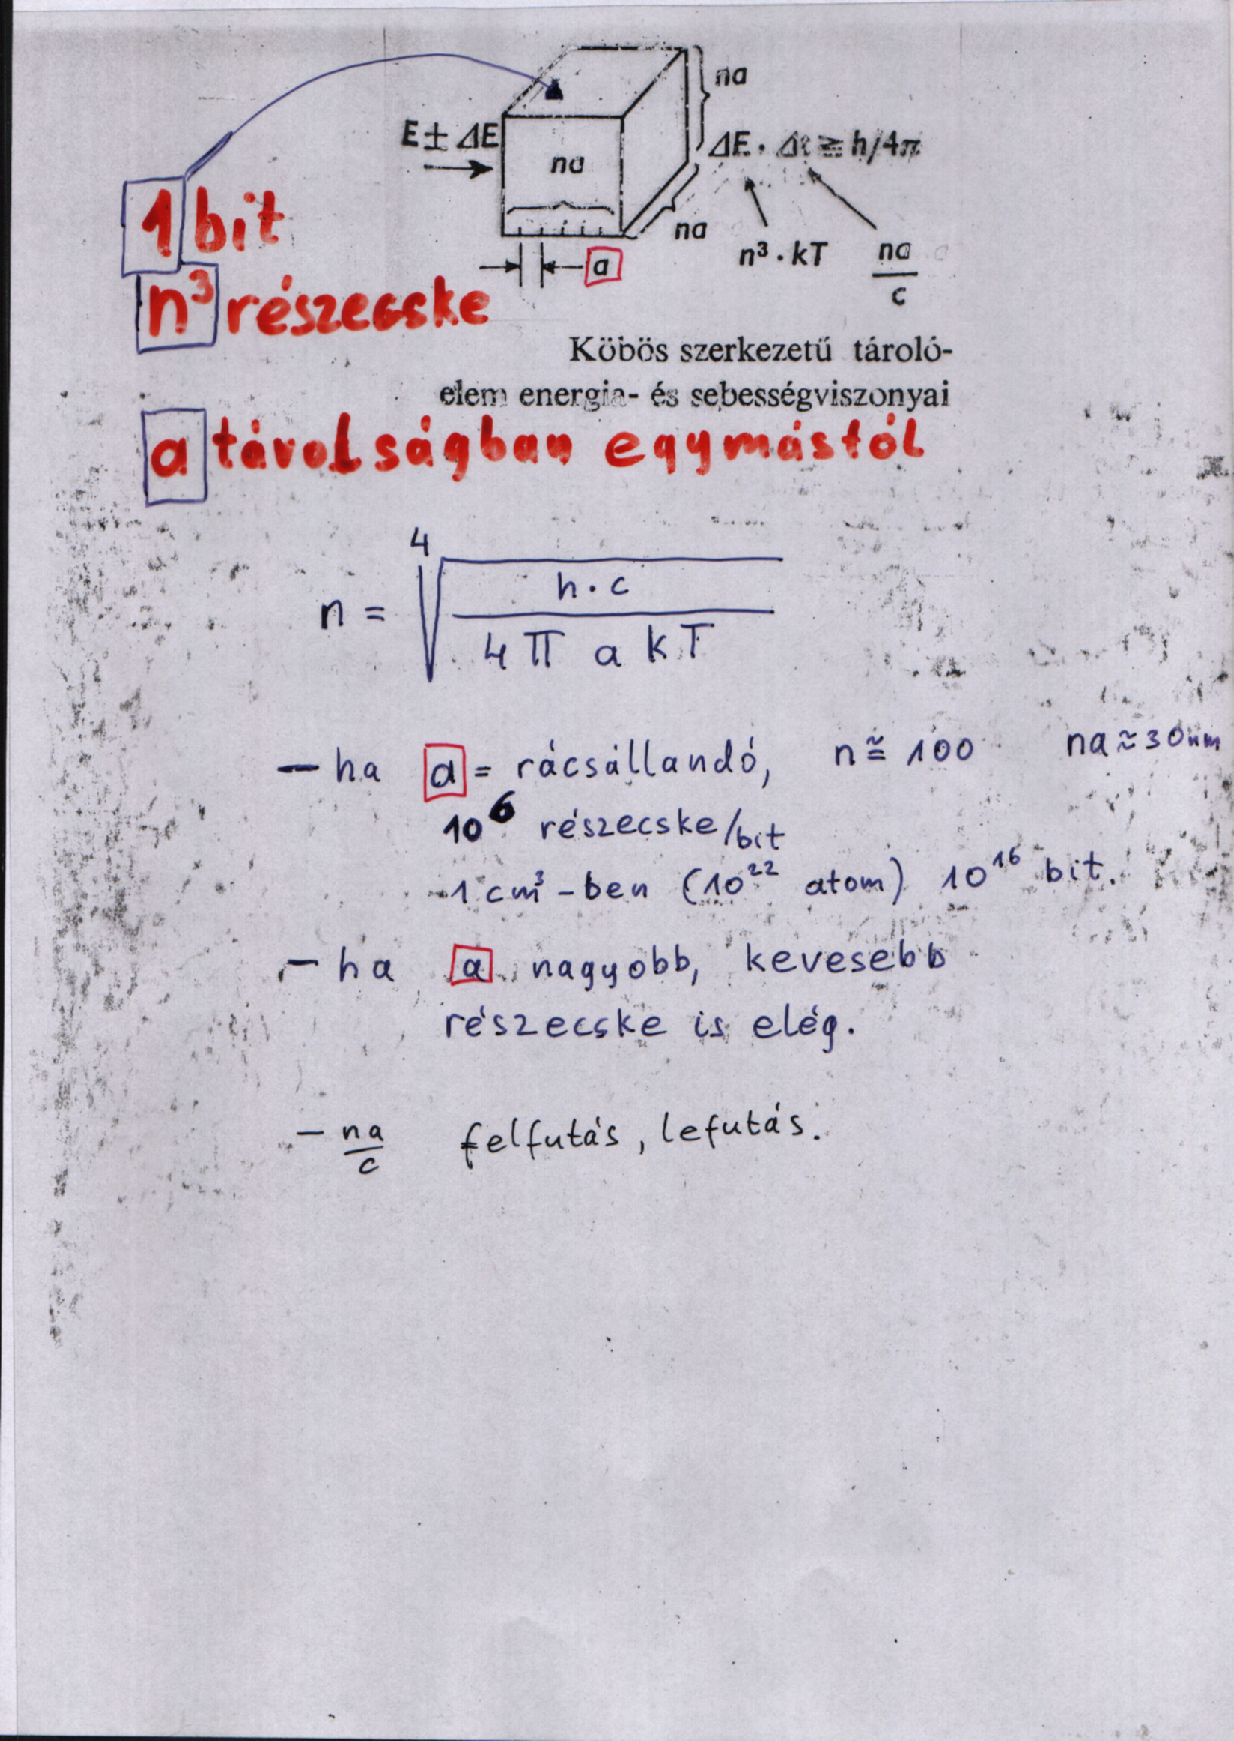 na
E ± ΔE
na
ΔE · Δt ≧ h/4π
1 bit
na
n³ · kT
na
c
a
n³ részecske
Köbös szerkezetű tároló-
elem energia- és sebességviszonyai
a távolságban egymástól
n = ∜ h · c
4 π a k T
– ha a = rácsállandó, n ≅ 100 na ≈ 30nm
10⁶ részecske/bit
1 cm³-ben (10²² atom) 10¹⁶ bit.
– ha a nagyobb, kevesebb
részecske is elég.
– na
c
felfutás, lefutás.